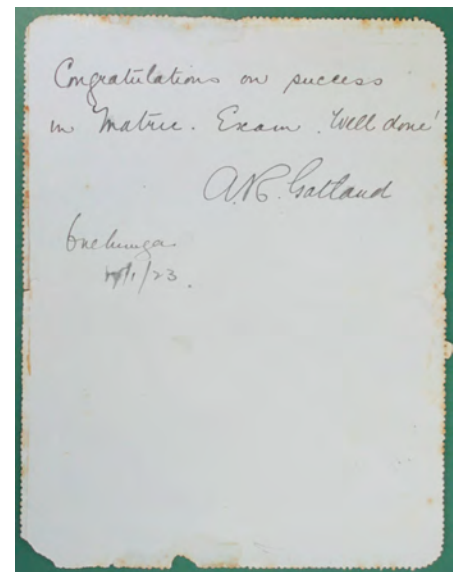 Congratulations on success
in Matric. Exam. 'Well done'
A.R. Gatland
Onehunga
/1/23.